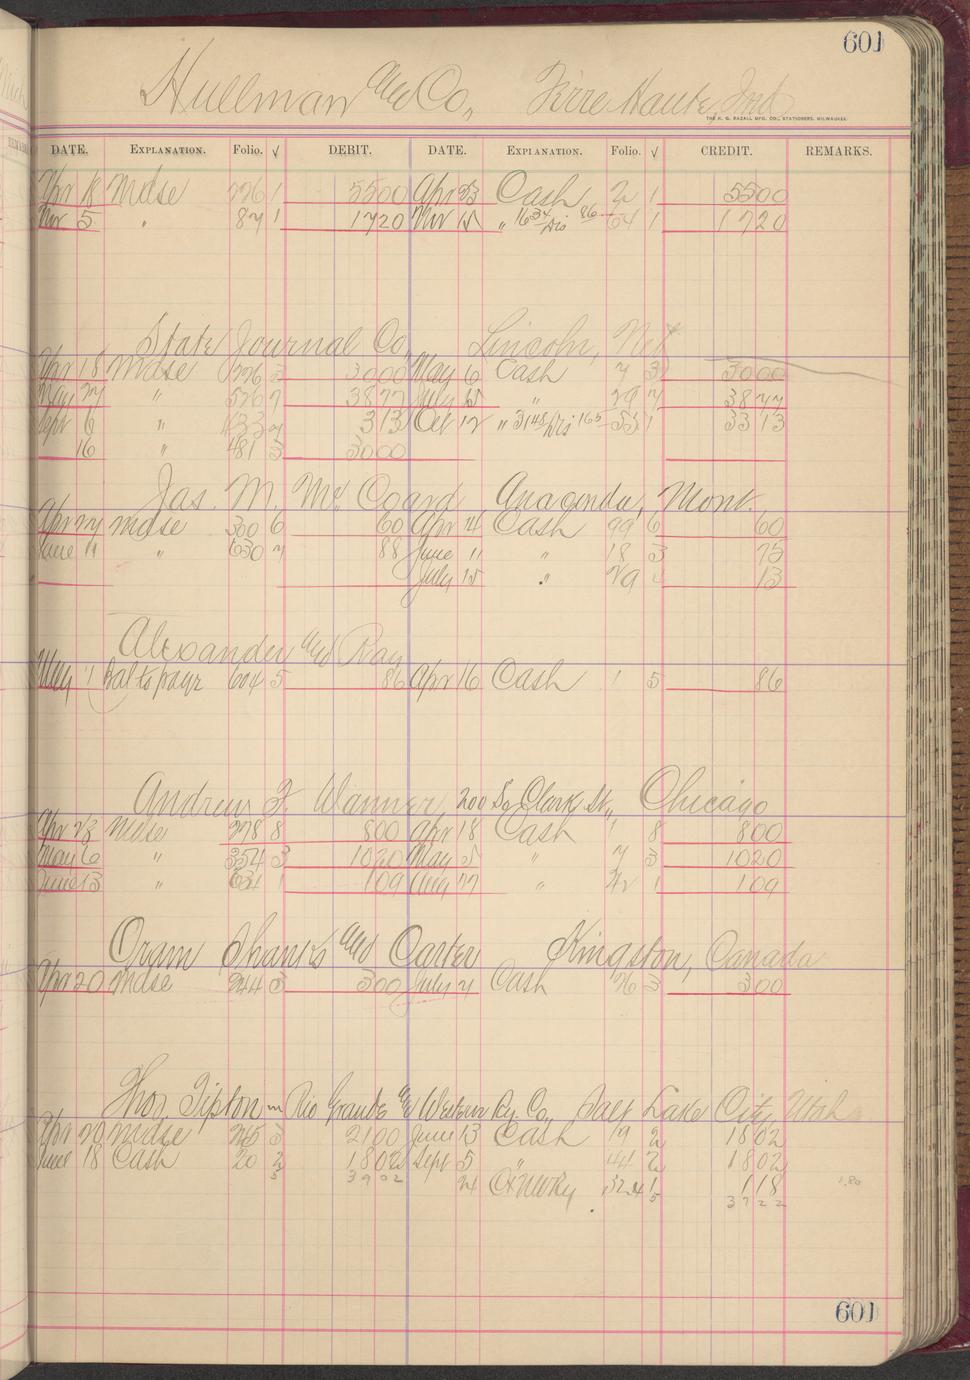 601
Hullman and Co, Terre Haute, Ind
THE H. G. RAZALL MFG. CO., STATIONERS, MILWAUKEE
DATE. EXPLANATION. Folio. √ DEBIT. DATE. EXPLANATION. Folio. √ CREDIT. REMARKS.
Apr 18 Mdse 226 1 5500 Apr 23 Cash 2 1 5500
Nov 5 " 87 1 1720 Nov 15 " 1634 Dis 86 64 1 1720
State Journal Co, Lincoln, Neb
Apr 18 Mdse 226 3 3000 May 6 Cash 7 3 3000
May 27 " 526 7 3877 July 15 " 29 7 3877
Sept 6 " 433 7 313 Oct 12 " 3148 Dis 165 53 1 3313
16 " 481 3 3000
Jas. M. McCoard Anaconda, Mont.
Apr 27 Mdse 300 6 60 Apr 4 Cash 99 6 60
June 19 " 630 7 88 June 11 " 18 3 75
July 15 " 29 13
Alexander and Ray
May 1 Bal to pay r 604 5 86 Apr 16 Cash 1 5 86
Andrew F. Wanner, 200 So Clark St, Chicago
Apr 23 Mdse 278 8 800 Apr 18 Cash 1 8 800
May 6 " 354 3 1020 May 5 " 7 3 1020
June 13 " 634 1 109 Aug 27 " 42 1 109
Oram Shanks and Carter Kingston, Canada
Apr 20 Mdse 244 3 300 July 7 Cash 26 3 300
Thos, Tipton Rio Grande and Western Ry Co, Salt Lake City, Utah
Apr 20 Mdse 245 3 2100 June 13 Cash 19 2 1802
June 18 Cash 20 2 1802 Sept 5 " 44 2 1802
5 3902 24 324 1 118 1.80
5 3722
601